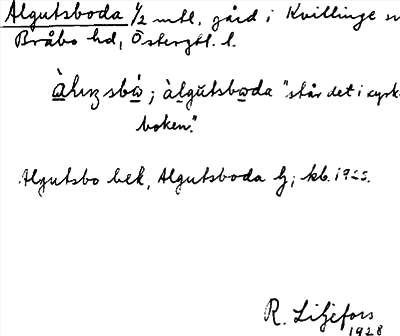 Algutsboda 1/2 mtl. gård i Kvillinge sn
Bråbo hd, Östergtl. l.
"står det i kyrk-
boken."
Algutsbo bek, Algutsboda hj; kb. 1925.
R. Liljefors
1928